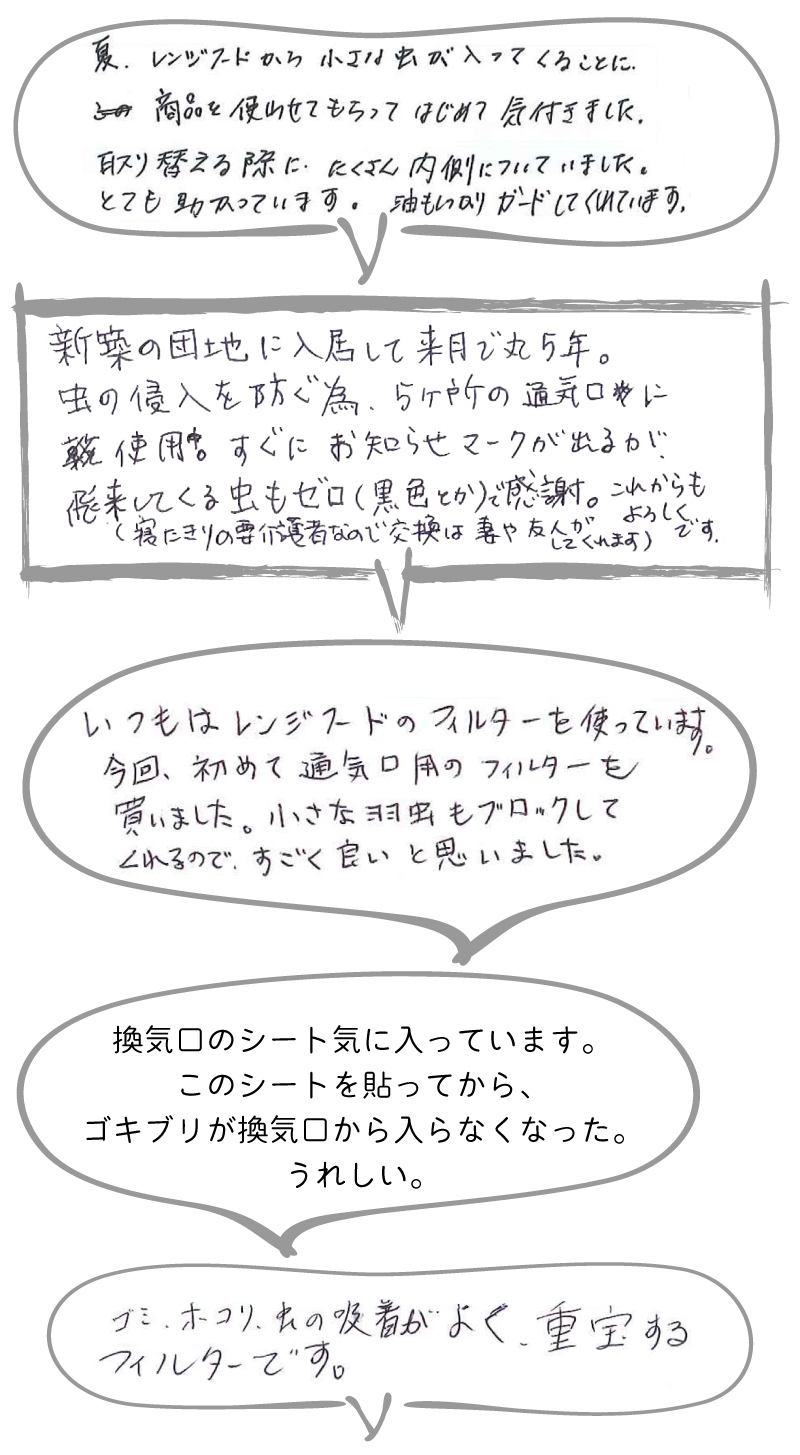 夏、レンジフードから小さな虫が入ってくることに、
商品を使わせてもらってはじめて気付きました。
取り替える際に、たくさん内側についていました。
とても助かっています。油もしっかりガードしてくれています。
新築の団地に入居して来月で丸5年。
虫の侵入を防ぐ為、5ヶ所の通気口に
使用中。すぐにお知らせマークが出るが、
飛来してくる虫もゼロ(黒色とか)で感謝。これからも
よろしくです。
(寝たきりの要介護者なので交換は妻や友人が
してくれます)
いつもはレンジフードのフィルターを使っています。
今回、初めて通気口用のフィルターを
買いました。小さな羽虫もブロックして
くれるので、すごく良いと思いました。
換気口のシート気に入っています。
このシートを貼ってから、
ゴキブリが換気口から入らなくなった。
うれしい。
ゴミ、ホコリ、虫の吸着がよく、重宝する
フィルターです。